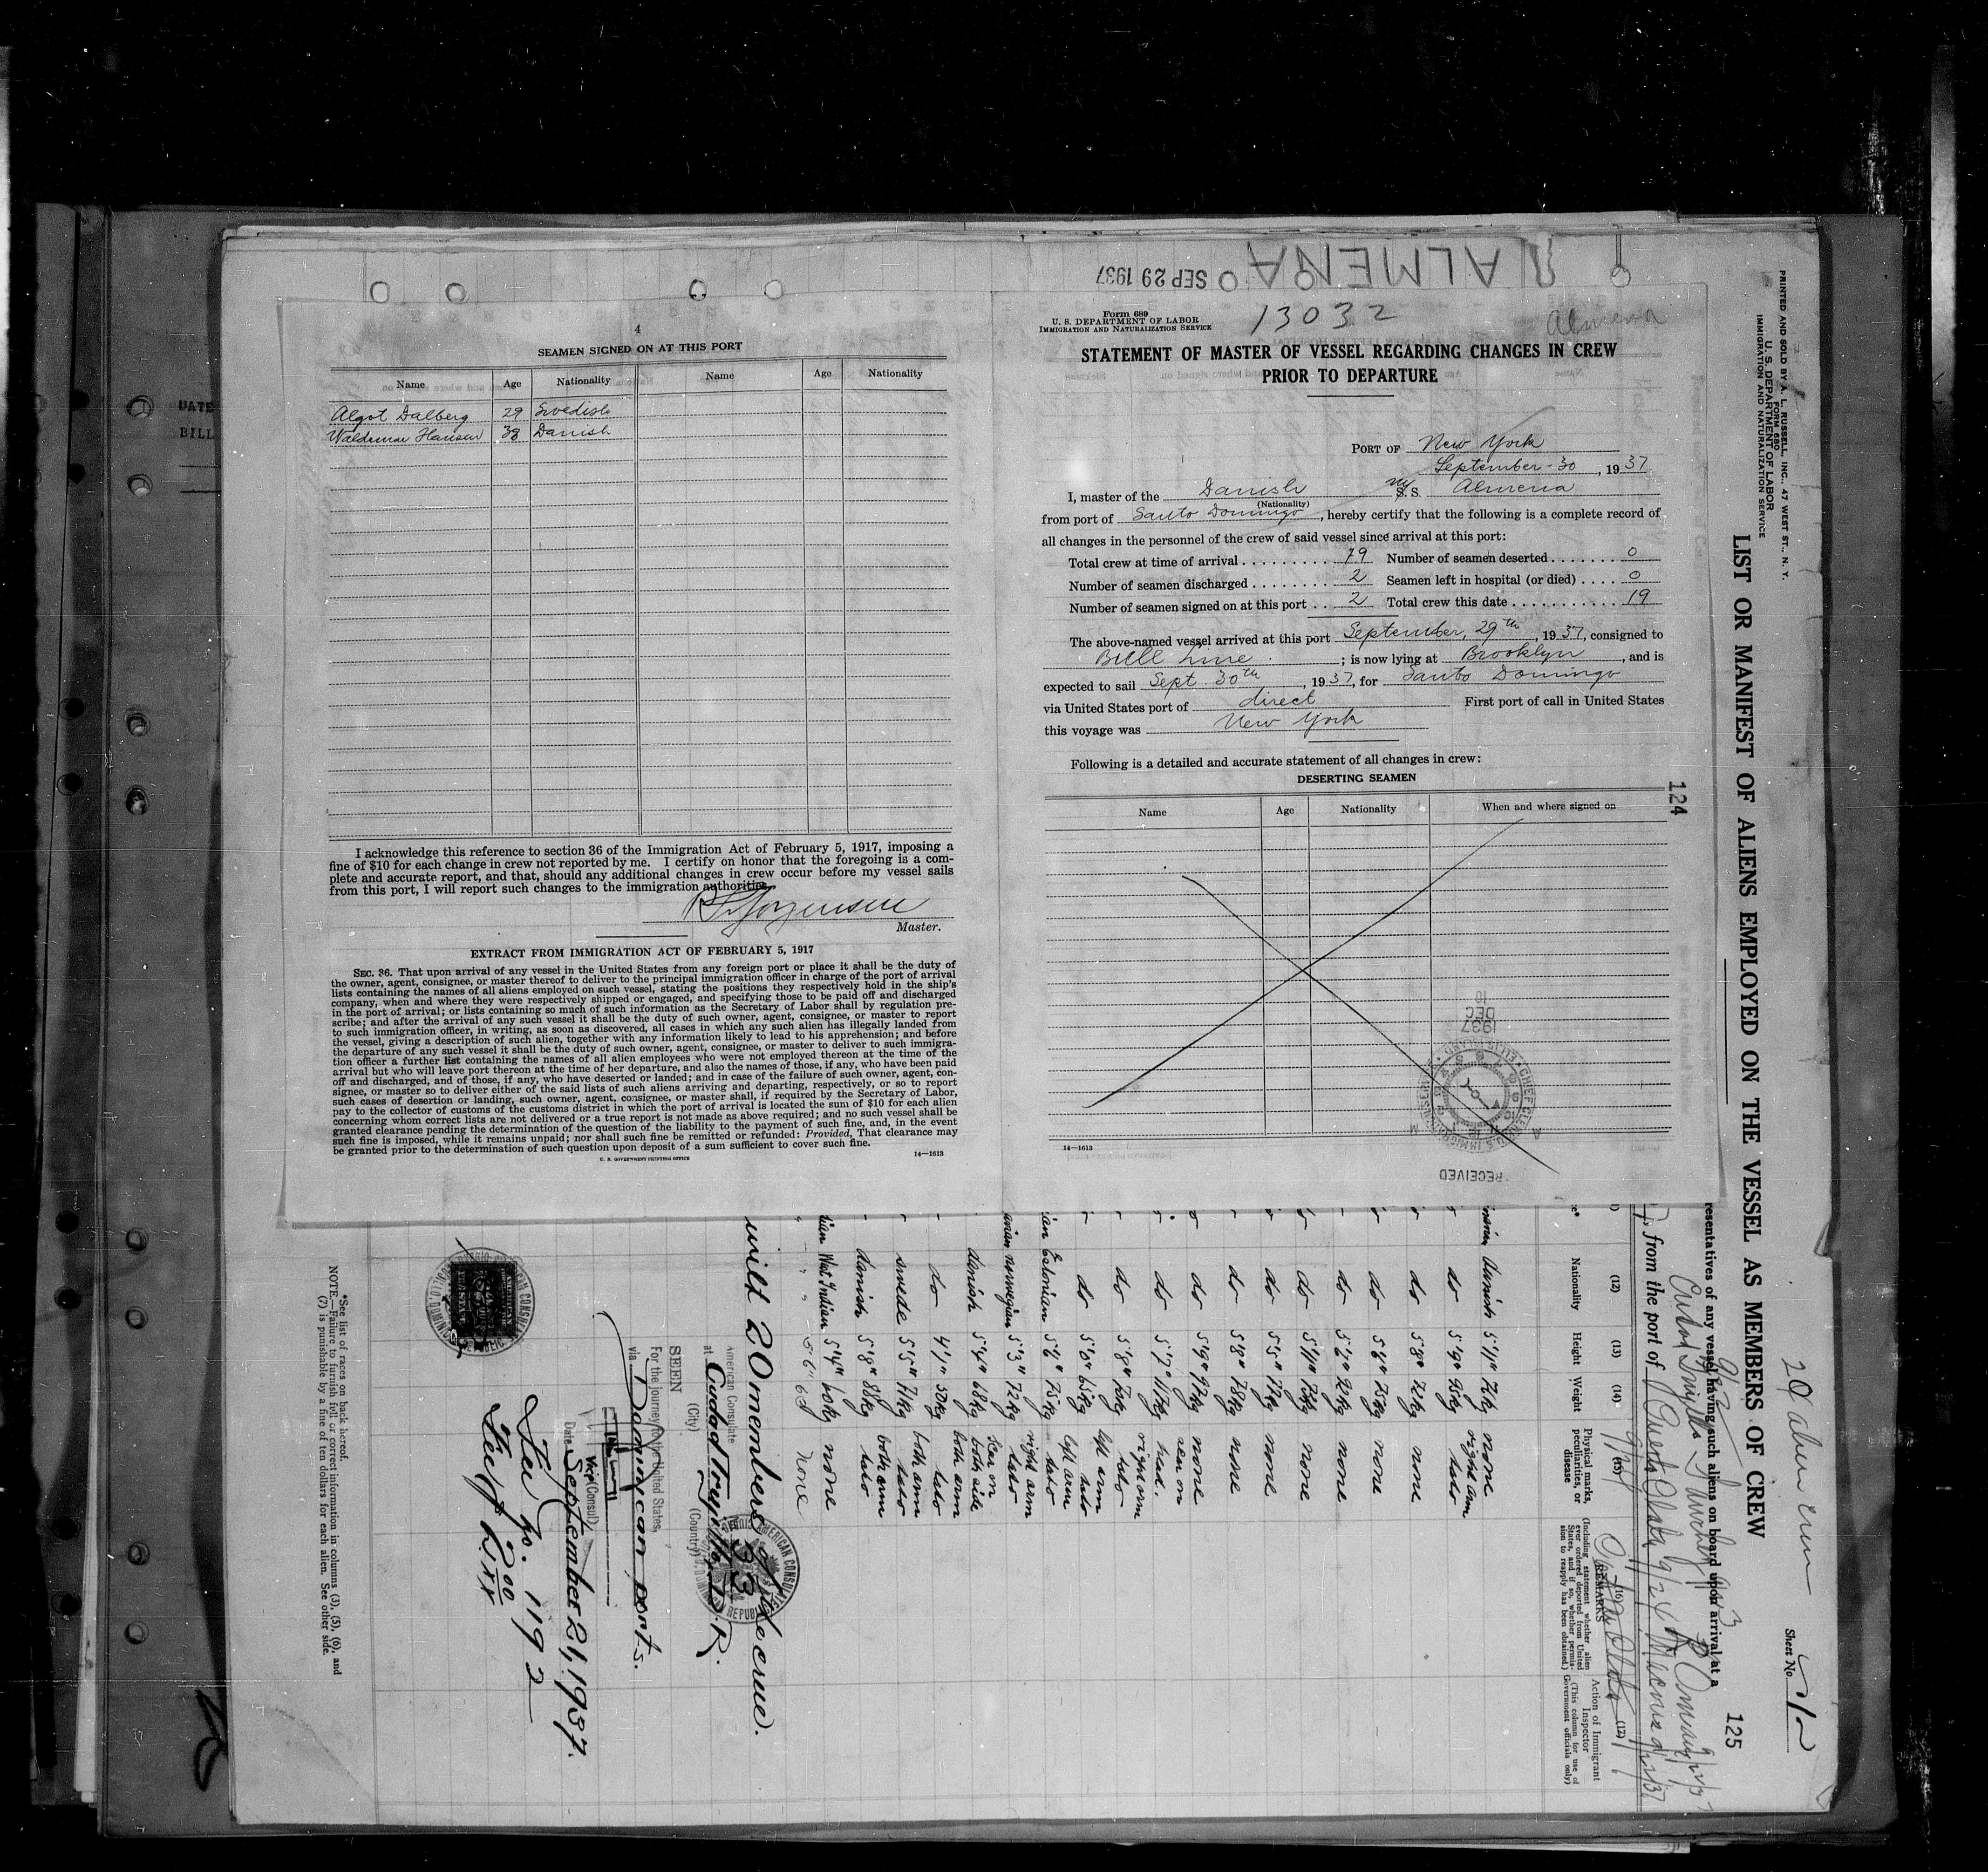 ALMENA
SEP 29 1937
4
SEAMEN SIGNED ON AT THIS PORT
Name Age Nationality Name Age Nationality
Algot Dalberg 29 Swedish
Waldemar Hansen 38 Danish
I acknowledge this reference to section 36 of the Immigration Act of February 5, 1917, imposing a
fine of $10 for each change in crew not reported by me. I certify on honor that the foregoing is a com-
plete and accurate report, and that, should any additional changes in crew occur before my vessel sails
from this port, I will report such changes to the immigration authorities.
Jorgensen
Master.
EXTRACT FROM IMMIGRATION ACT OF FEBRUARY 5, 1917
SEC. 36. That upon arrival of any vessel in the United States from any foreign port or place it shall be the duty of
the owner, agent, consignee, or master thereof to deliver to the principal immigration officer in charge of the port of arrival
lists containing the names of all aliens employed on such vessel, stating the positions they respectively hold in the ship's
company, when and where they were respectively shipped or engaged, and specifying those to be paid off and discharged
in the port of arrival; or lists containing so much of such information as the Secretary of Labor shall by regulation pre-
scribe; and after the arrival of any such vessel it shall be the duty of such owner, agent, consignee, or master to report
to such immigration officer, in writing, as soon as discovered, all cases in which any such alien has illegally landed from
the vessel, giving a description of such alien, together with any information likely to lead to his apprehension; and before
the departure of any such vessel it shall be the duty of such owner, agent, consignee, or master to deliver to such immigra-
tion officer a further list containing the names of all alien employees who were not employed thereon at the time of the
arrival but who will leave port thereon at the time of her departure, and also the names of those, if any, who have been paid
off and discharged, and of those, if any, who have deserted or landed; and in case of the failure of such owner, agent, con-
signee, or master so to deliver either of the said lists of such aliens arriving and departing, respectively, or so to report
such cases of desertion or landing, such owner, agent, consignee, or master shall, if required by the Secretary of Labor,
pay to the collector of customs of the customs district in which the port of arrival is located the sum of $10 for each alien
concerning whom correct lists are not delivered or a true report is not made as above required; and no such vessel shall be
granted clearance pending the determination of the question of the liability to the payment of such fine, and, in the event
such fine is imposed, while it remains unpaid; nor shall such fine be remitted or refunded: Provided, That clearance may
be granted prior to the determination of such question upon deposit of a sum sufficient to cover such fine.
U. S. GOVERNMENT PRINTING OFFICE 14—1613
Form 689
U. S. DEPARTMENT OF LABOR
IMMIGRATION AND NATURALIZATION SERVICE
13032
Almena
STATEMENT OF MASTER OF VESSEL REGARDING CHANGES IN CREW
PRIOR TO DEPARTURE
PORT OF New York
September - 30, 1937
I, master of the Danish S. S. Almena
(Nationality)
from port of Santo Domingo, hereby certify that the following is a complete record of
all changes in the personnel of the crew of said vessel since arrival at this port:
Total crew at time of arrival 19 Number of seamen deserted 0
Number of seamen discharged 2 Seamen left in hospital (or died) 0
Number of seamen signed on at this port 2 Total crew this date 19
The above-named vessel arrived at this port September, 29th, 1937, consigned to
Bull Line; is now lying at Brooklyn, and is
expected to sail Sept. 30th, 1937, for Santo Domingo
via United States port of direct First port of call in United States
this voyage was New York
Following is a detailed and accurate statement of all changes in crew:
DESERTING SEAMEN
Name Age Nationality When and where signed on
14—1613
RECEIVED
1937
DEC
10
124
PRINTED AND SOLD BY A. L. RUSSELL, INC., 47 WEST ST., N. Y.
FORM 680
U. S. DEPARTMENT OF LABOR
IMMIGRATION AND NATURALIZATION SERVICE
LIST OR MANIFEST OF ALIENS EMPLOYED ON THE VESSEL AS MEMBERS OF CREW
20 alien crew
Sheet No. 1
125
resentatives of any vessel having such aliens on board upon arrival at a
from the port of Puerto Plata
(12) (13) (14) (15) (16) (17)
Nationality Height Weight
Physical marks, peculiarities, or disease
REMARKS
(Including statement whether alien ever ordered deported from United States, and if so, whether permission to reapply has been obtained.)
Action of Immigrant Inspector
(This column for use of Government officials only)
Danish 5'11" 72kg none
do 5'9" 95kg right arm tato
do 5'8" 72kg none
do 5'6" 75kg none
do 5'6" 92kg none
do 5'11" 75kg none
do 5'5" 77kg none
do 5'8" 78kg none
do 5'9" 97kg none
do 5'7" 117kg scar on head.
do 5'8" 76kg right arm tato
do 5'0" 65kg left arm tato
Estonian 5'6" 75kg left arm tato
norwegian 5'3" 72kg right arm tato
danish 5'4" 68kg scar on both side
do 4'1" 50kg both arm tato
swede 5'5" 71kg both arm tato
danish 5'8" 88kg both arm tato
West Indian 5'4" 60kg none
5'6" 68 none
with 20 members of the crue.
American Consulate
at Ciudad Trujillo, D.R.
(City) (Country)
SEEN
For the journey to the United States,
via Dominican ports.
Vice Consul
Date September 21, 1937.
Fee No. 1192
Fee $2.00
*See list of races on back hereof.
NOTE.—Failure to furnish full or correct information in columns (3), (5), (6), and
(7) is punishable by a fine of ten dollars for each alien. See other side.
DATE
BILL